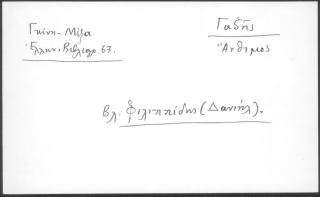 Γκίνη - Μέξα
Ἑλλην. Βιβλιογρ. 67.
Γαζῆς
Ἄνθιμος
Βλ. Φιλιππίδης (Δανιήλ).